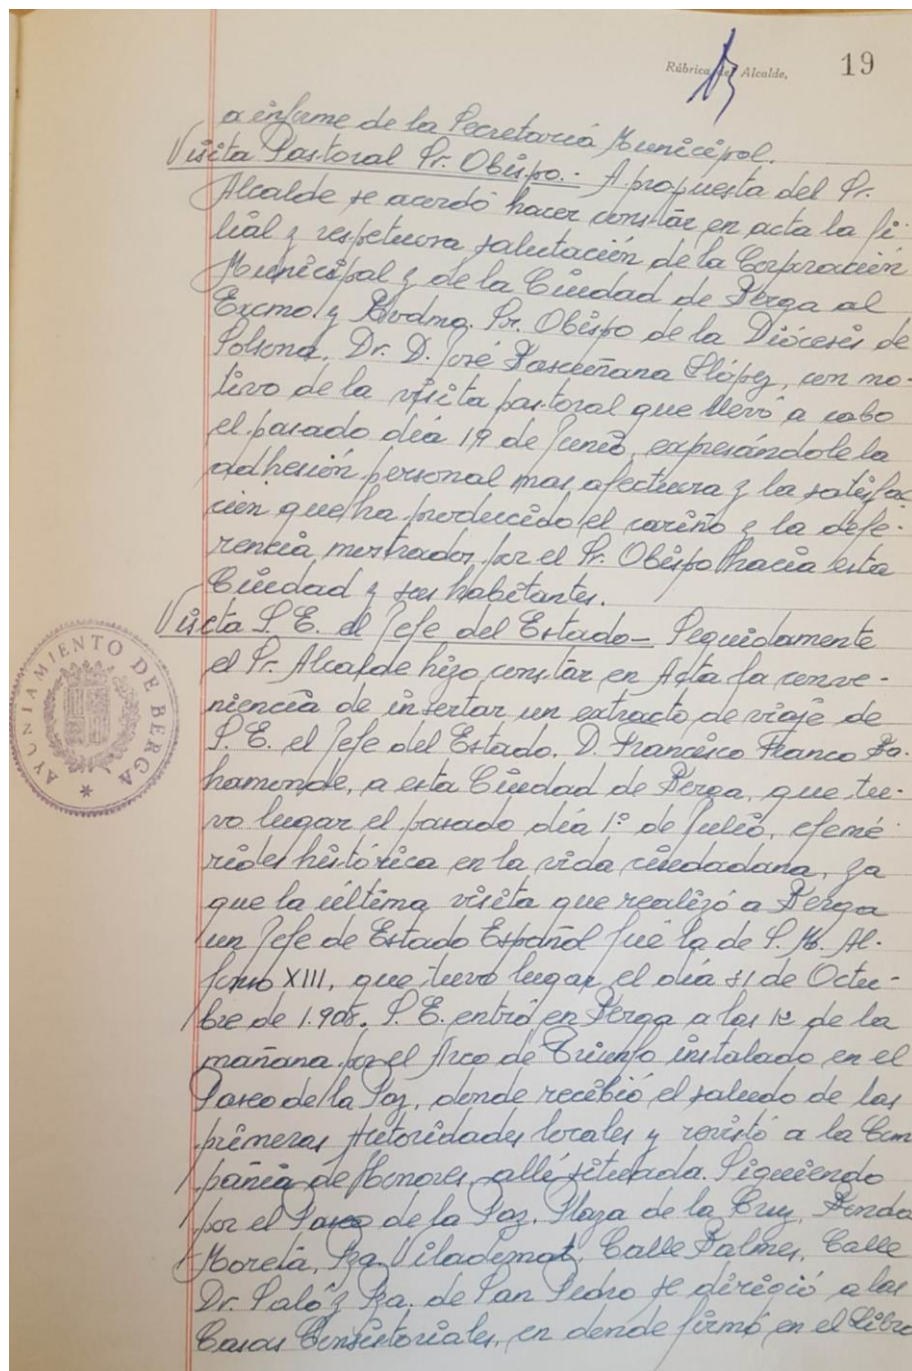 Rúbrica del Alcalde, 19
a informe de la Secretaría Municipal.
Visita Pastoral Sr. Obispo.- A propuesta del Sr.
Alcalde se acordó hacer constar en acta la fi-
lial y respetuosa salutación de la Corporación
Municipal y de la Ciudad de Berga al
Excmo. y Rvdmo. Sr. Obispo de la Diócesis de
Solsona, Dr. D. José Bascuñana Llópez, con mo-
tivo de la visita pastoral que llevó a cabo
el pasado día 19 de Junio, expresándole la
adhesión personal mas afectuosa y la satisfac
ción que ha producido el cariño y la defe-
rencia mostrados por el Sr. Obispo hacia esta
Ciudad y sus habitantes.
Visita S. E. el Jefe del Estado- Seguidamente
el Sr. Alcalde hizo constar en Acta la conve-
niencia de insertar un extracto de viaje de
S. E. el Jefe del Estado, D. Francisco Franco Ba-
hamonde, a esta Ciudad de Berga, que tu-
vo lugar el pasado día 1º de Julio, efemé
rides histórica en la vida ciudadana, ya
que la última visita que realizó a Berga
un Jefe de Estado Español fué la de S. M. Al-
fonso XIII, que tuvo lugar el día 31 de Octu-
bre de 1.908. S. E. entró en Berga a las 12 de la
mañana por el Arco de Triunfo instalado en el
Paseo de la Paz, donde recibió el saludo de las
primeras Autoridades locales y revistó a la Com
pañía de Honores, allí situada. Siguiendo
por el Paseo de la Paz, Plaza de la Cruz, Ronda
Moreta, Pza. Vilademat, Calle Balmes, Calle
Dr. Saló y Pza. de San Pedro se dirigió a las
Casas Consistoriales, en donde firmó en el Libro
AYUNTAMIENTO DE BERGA